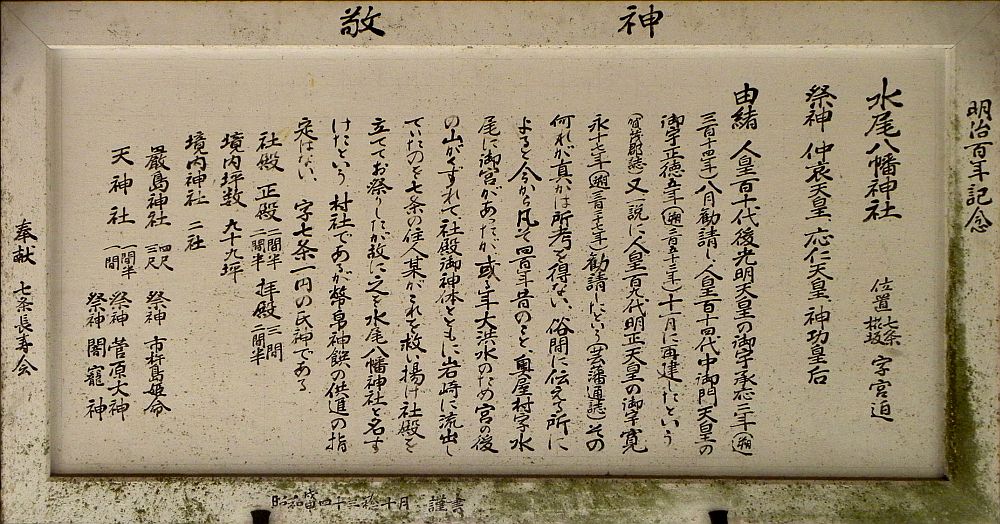 敬神
明治百年記念
水尾八幡神社 位置 七条椛坂 字宮迫
祭神 仲哀天皇、応仁天皇、神功皇后
由緒 人皇百十代後光明天皇の御宇承応三年(遡
三百十四年)八月勧請し、人皇百十四代中御門天皇の
御宇正徳五年(遡二百五十三年)十一月に再建したという
(賀茂郡誌)又一説に、人皇百九代明正天皇の御宇寛
永十七年(遡三百二十七年)勧請しという(芸藩通誌)その
何れが真かは所考を得ない、俗間に伝える所に
よると今から凡そ四百年昔のこと奥屋村字水
尾に御宮があったが、或る年大洪水のため宮の後
の山がくずれて社殿御神体とともに岩崎に流出し
ていたのを七条の住人某がこれを救い揚げ社殿を
立ててお祭りしたが故に之を水尾八幡神社と名す
けたという 村社であるが幣帛神饌の供進の指
定はない、 字七条一円の氏神である
社殿 正殿 二間半 二間半 拝殿 三間 二間半
境内坪数 九十九坪
境内神社 二社
嚴島神社 四尺 三尺 祭神 市杵島姫命
天神社 一間半 一間 祭神 菅原大神
祭神 闇龗神
奉献 七条長寿会
昭和戊申四十三稔十月 謹書